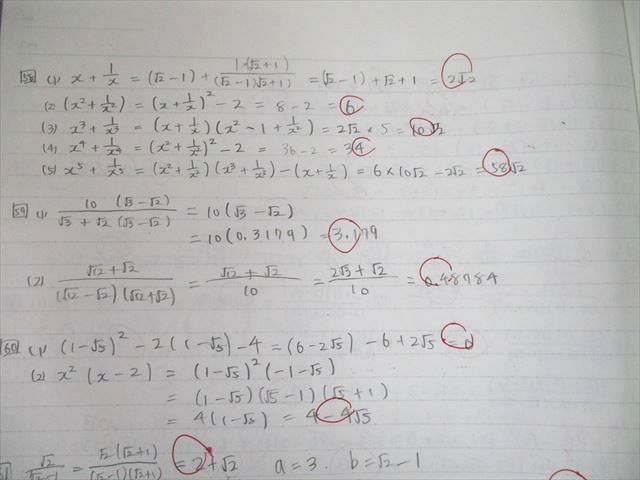 58 (1) x + 1/x = (√2-1) + 1·(√2+1)/(√2-1)(√2+1) = (√2-1) + √2+1 = 2√2
(2) (x² + 1/x²) = (x + 1/x)² - 2 = 8 - 2 = 6
(3) x³ + 1/x³ = (x + 1/x)(x² - 1 + 1/x²) = 2√2 × 5 = 10√2
(4) x⁴ + 1/x⁴ = (x² + 1/x²)² - 2 = 36 - 2 = 34
(5) x⁵ + 1/x⁵ = (x² + 1/x²)(x³ + 1/x³) - (x + 1/x) = 6 × 10√2 - 2√2 = 58√2
59 (1) 10 (√3-√2)/√3+√2 (√3-√2) = 10(√3-√2)
= 10(0.3179) = 3.179
(2) √12+√2/(√12-√2)(√12+√2) = √12+√2/10 = 2√3+√2/10 = 0.48784
60 (1) (1-√5)² - 2(1-√5) - 4 = (6-2√5) - 6 + 2√5 = 0
(2) x²(x-2) = (1-√5)²(-1-√5)
= (1-√5)(√5-1)(√5+1)
= 4(1-√5) = 4-4√5
√2/√2-1 = √2(√2+1)/(√2-1)(√2+1) = 2+√2 a=3. b=√2-1